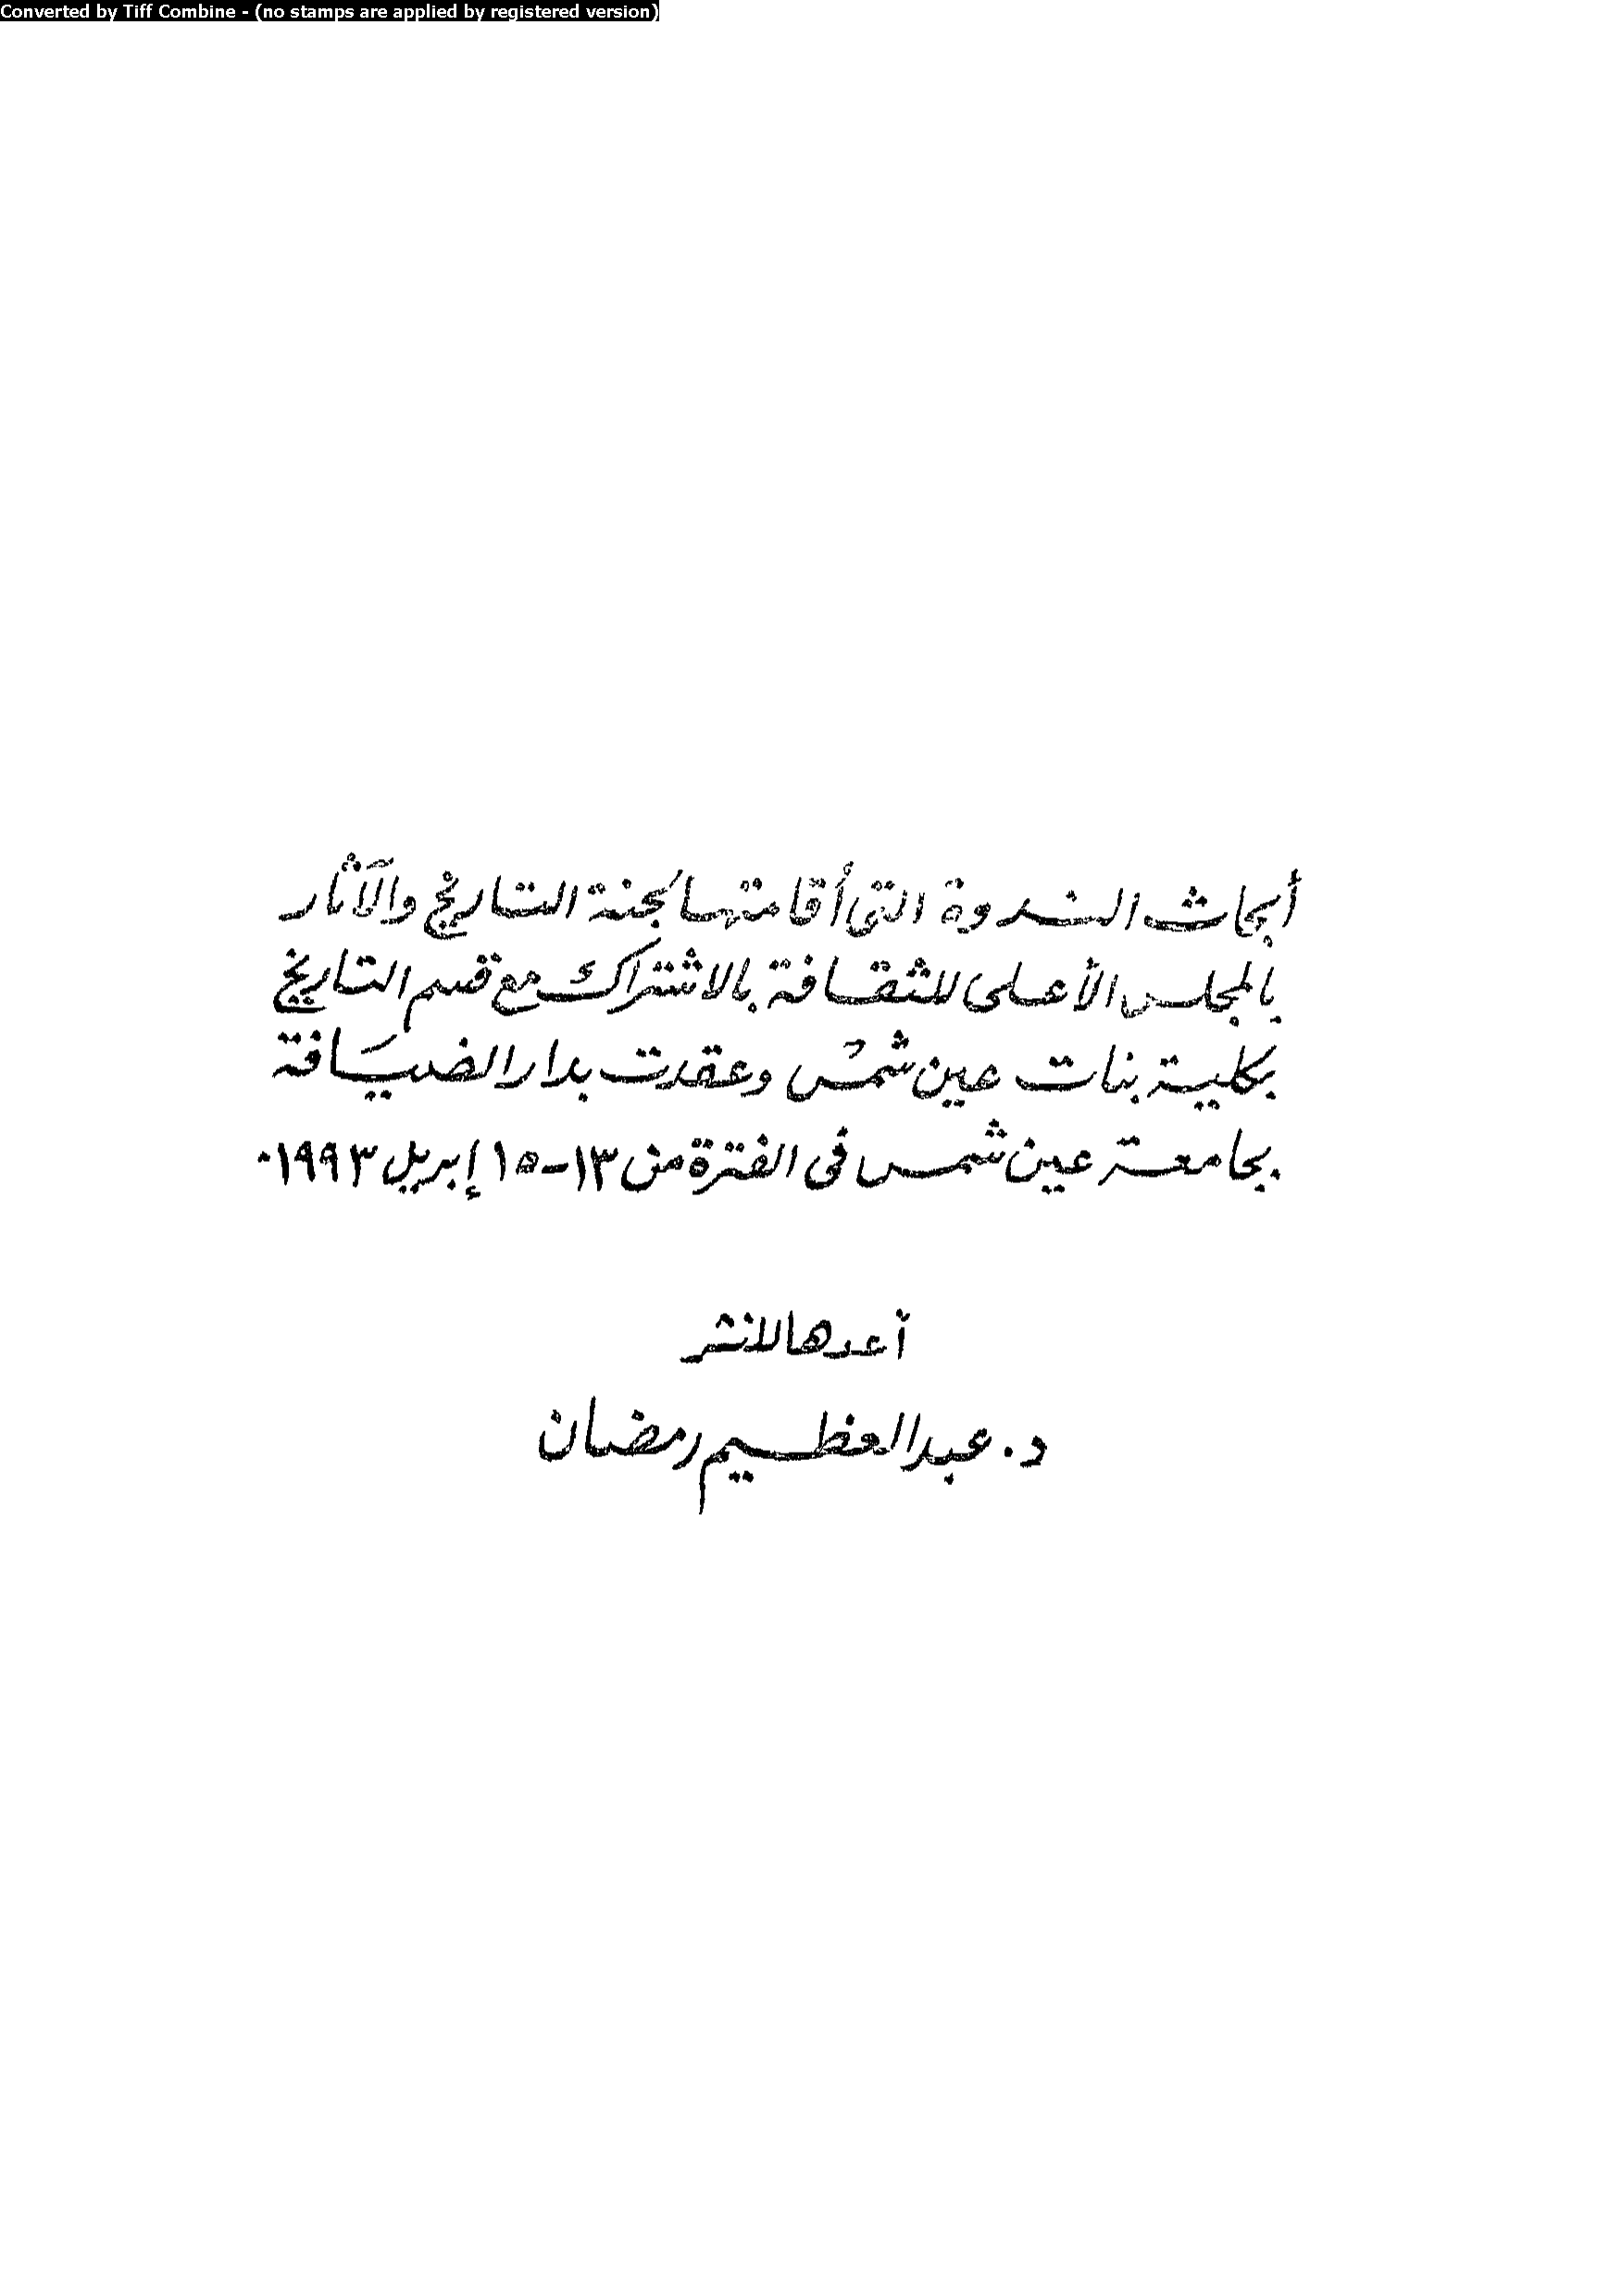 Converted by Tiff Combine - (no stamps are applied by registered version)
أبحاث الندوة التى أقامتها لجنة التاريخ والآثار
بالمجلس الأعلى للثقافة بالاشتراك مع قسم التاريخ
بكلية بنات عين شمس وعقدت بدار الضيافة
بجامعة عين شمس فى الفترة من ١٣-١٥ إبريل ١٩٩٣٠
أعدها للنشر
د. عبد العظيم رمضان